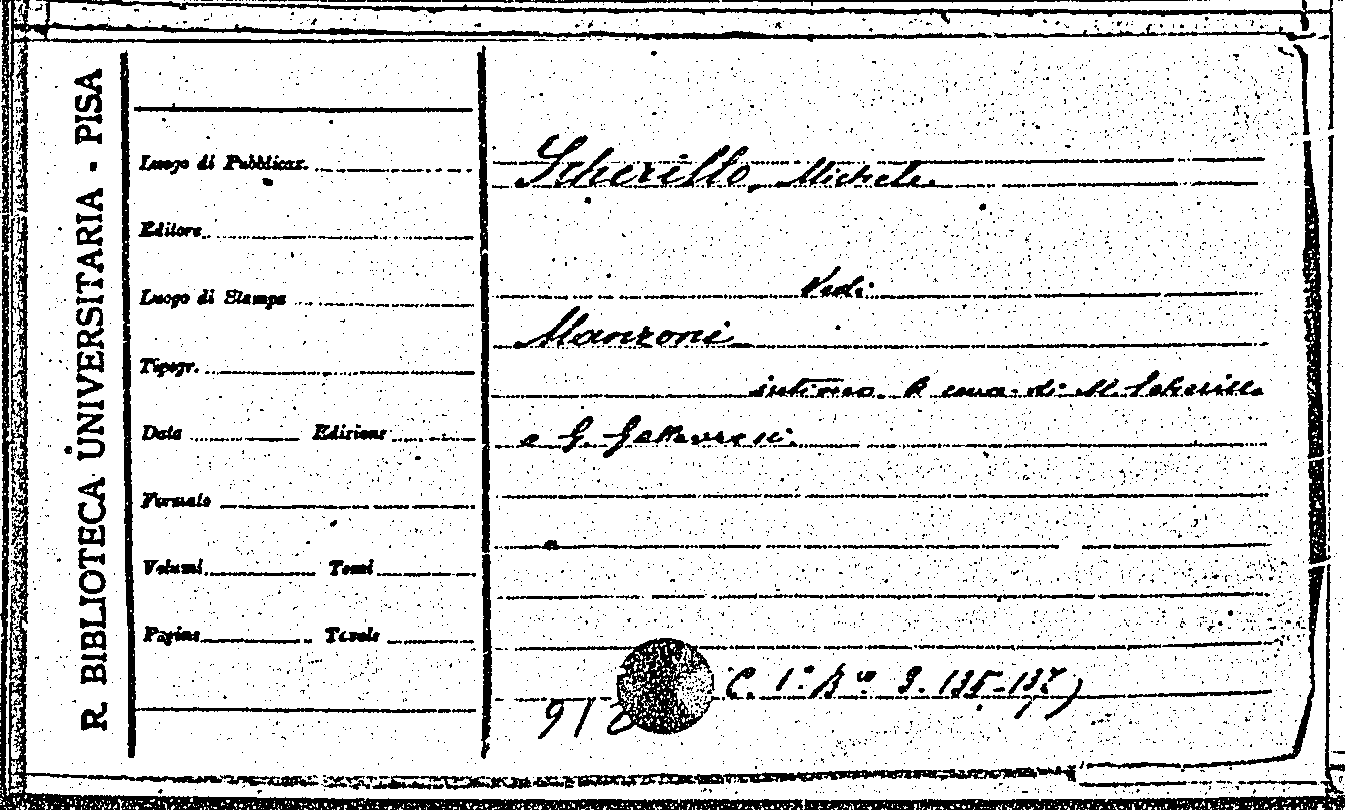 R. BIBLIOTECA UNIVERSITARIA - PISA
Luogo di Pubblicaz.
Editore
Luogo di Stampa
Tipogr.
Data Edizione
Formato
Volumi Tomi
Pagine Tavole
Scherillo, Michele.
Vedi
Manzoni
intimo. A cura di M. Scherillo
e G. Gallavresi.
C. 1° 9. 135-137)